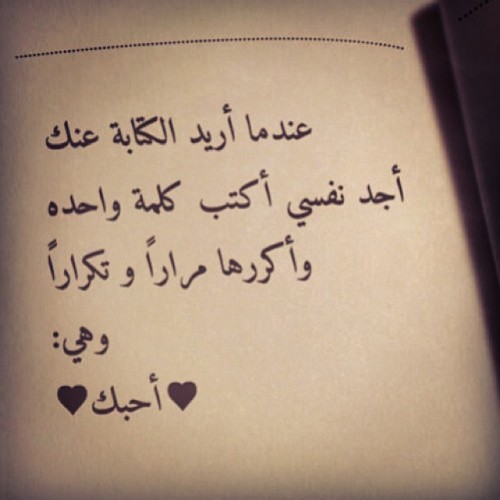 عندما أريد الكتابة عنك
أجد نفسي أكتب كلمة واحده
وأكررها مراراً و تكراراً
وهي:
♥أحبك♥